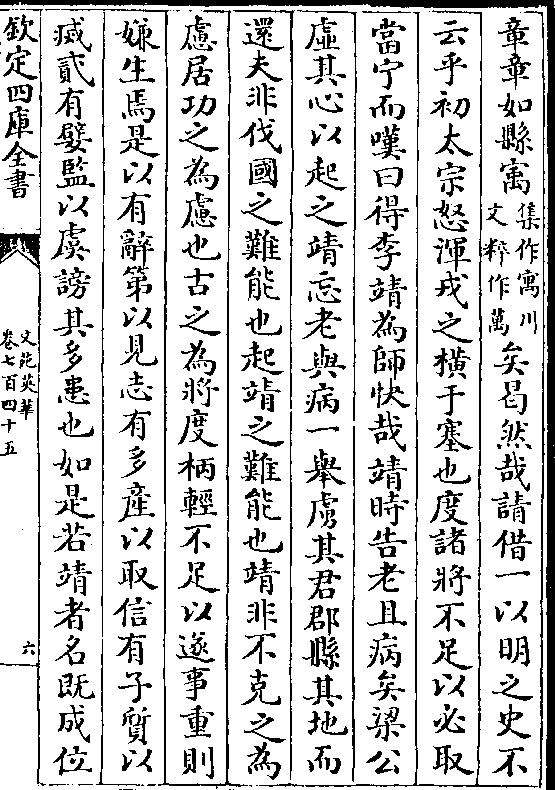 章章如縣寓集作寓川文粹作萬矣曷然哉請借一以明之史不
云乎初太宗怒渾戎之横于塞也度諸將不足以必取
當宁而嘆曰得李靖為師快哉靖時告老且病矣梁公
虛其心以起之靖忘老與病一舉虜其君郡縣其地而
還夫非伐國之難能也起靖之難能也靖非不克之為
慮居功之為慮也古之為將度柄輕不足以遂事重則
嫌生焉是以有辭第以見志有多產以取信有子質以
滅貳有嬖監以虞謗其多患也如是若靖者名既成位
欽定四庫全書
文苑英華
卷七百四十五
六